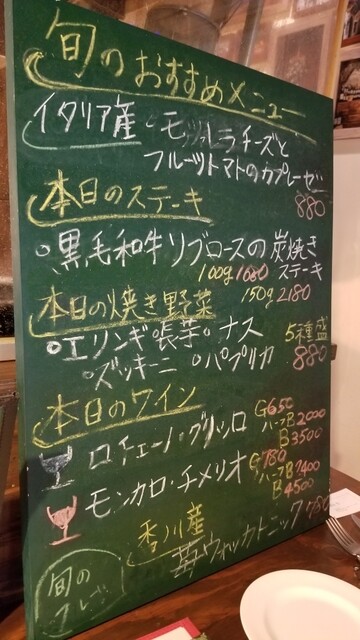 旬のおすすめメニュー
イタリア産・モッツァレラチーズと
フルーツトマトのカプレーゼ
880
本日のステーキ
黒毛和牛リブロースの炭焼き
ステーキ
100g 1680
150g 2180
本日の焼き野菜
エリンギ 長芋 ナス
ズッキーニ パプリカ
5種盛
880
本日のワイン
ロチェーノ・グリッロ
G650
ハーフB2000
B3500
モンカロ・チメリオ
G780
ハーフB2400
B4500
香川産
苺ウォッカトニック 780
旬の